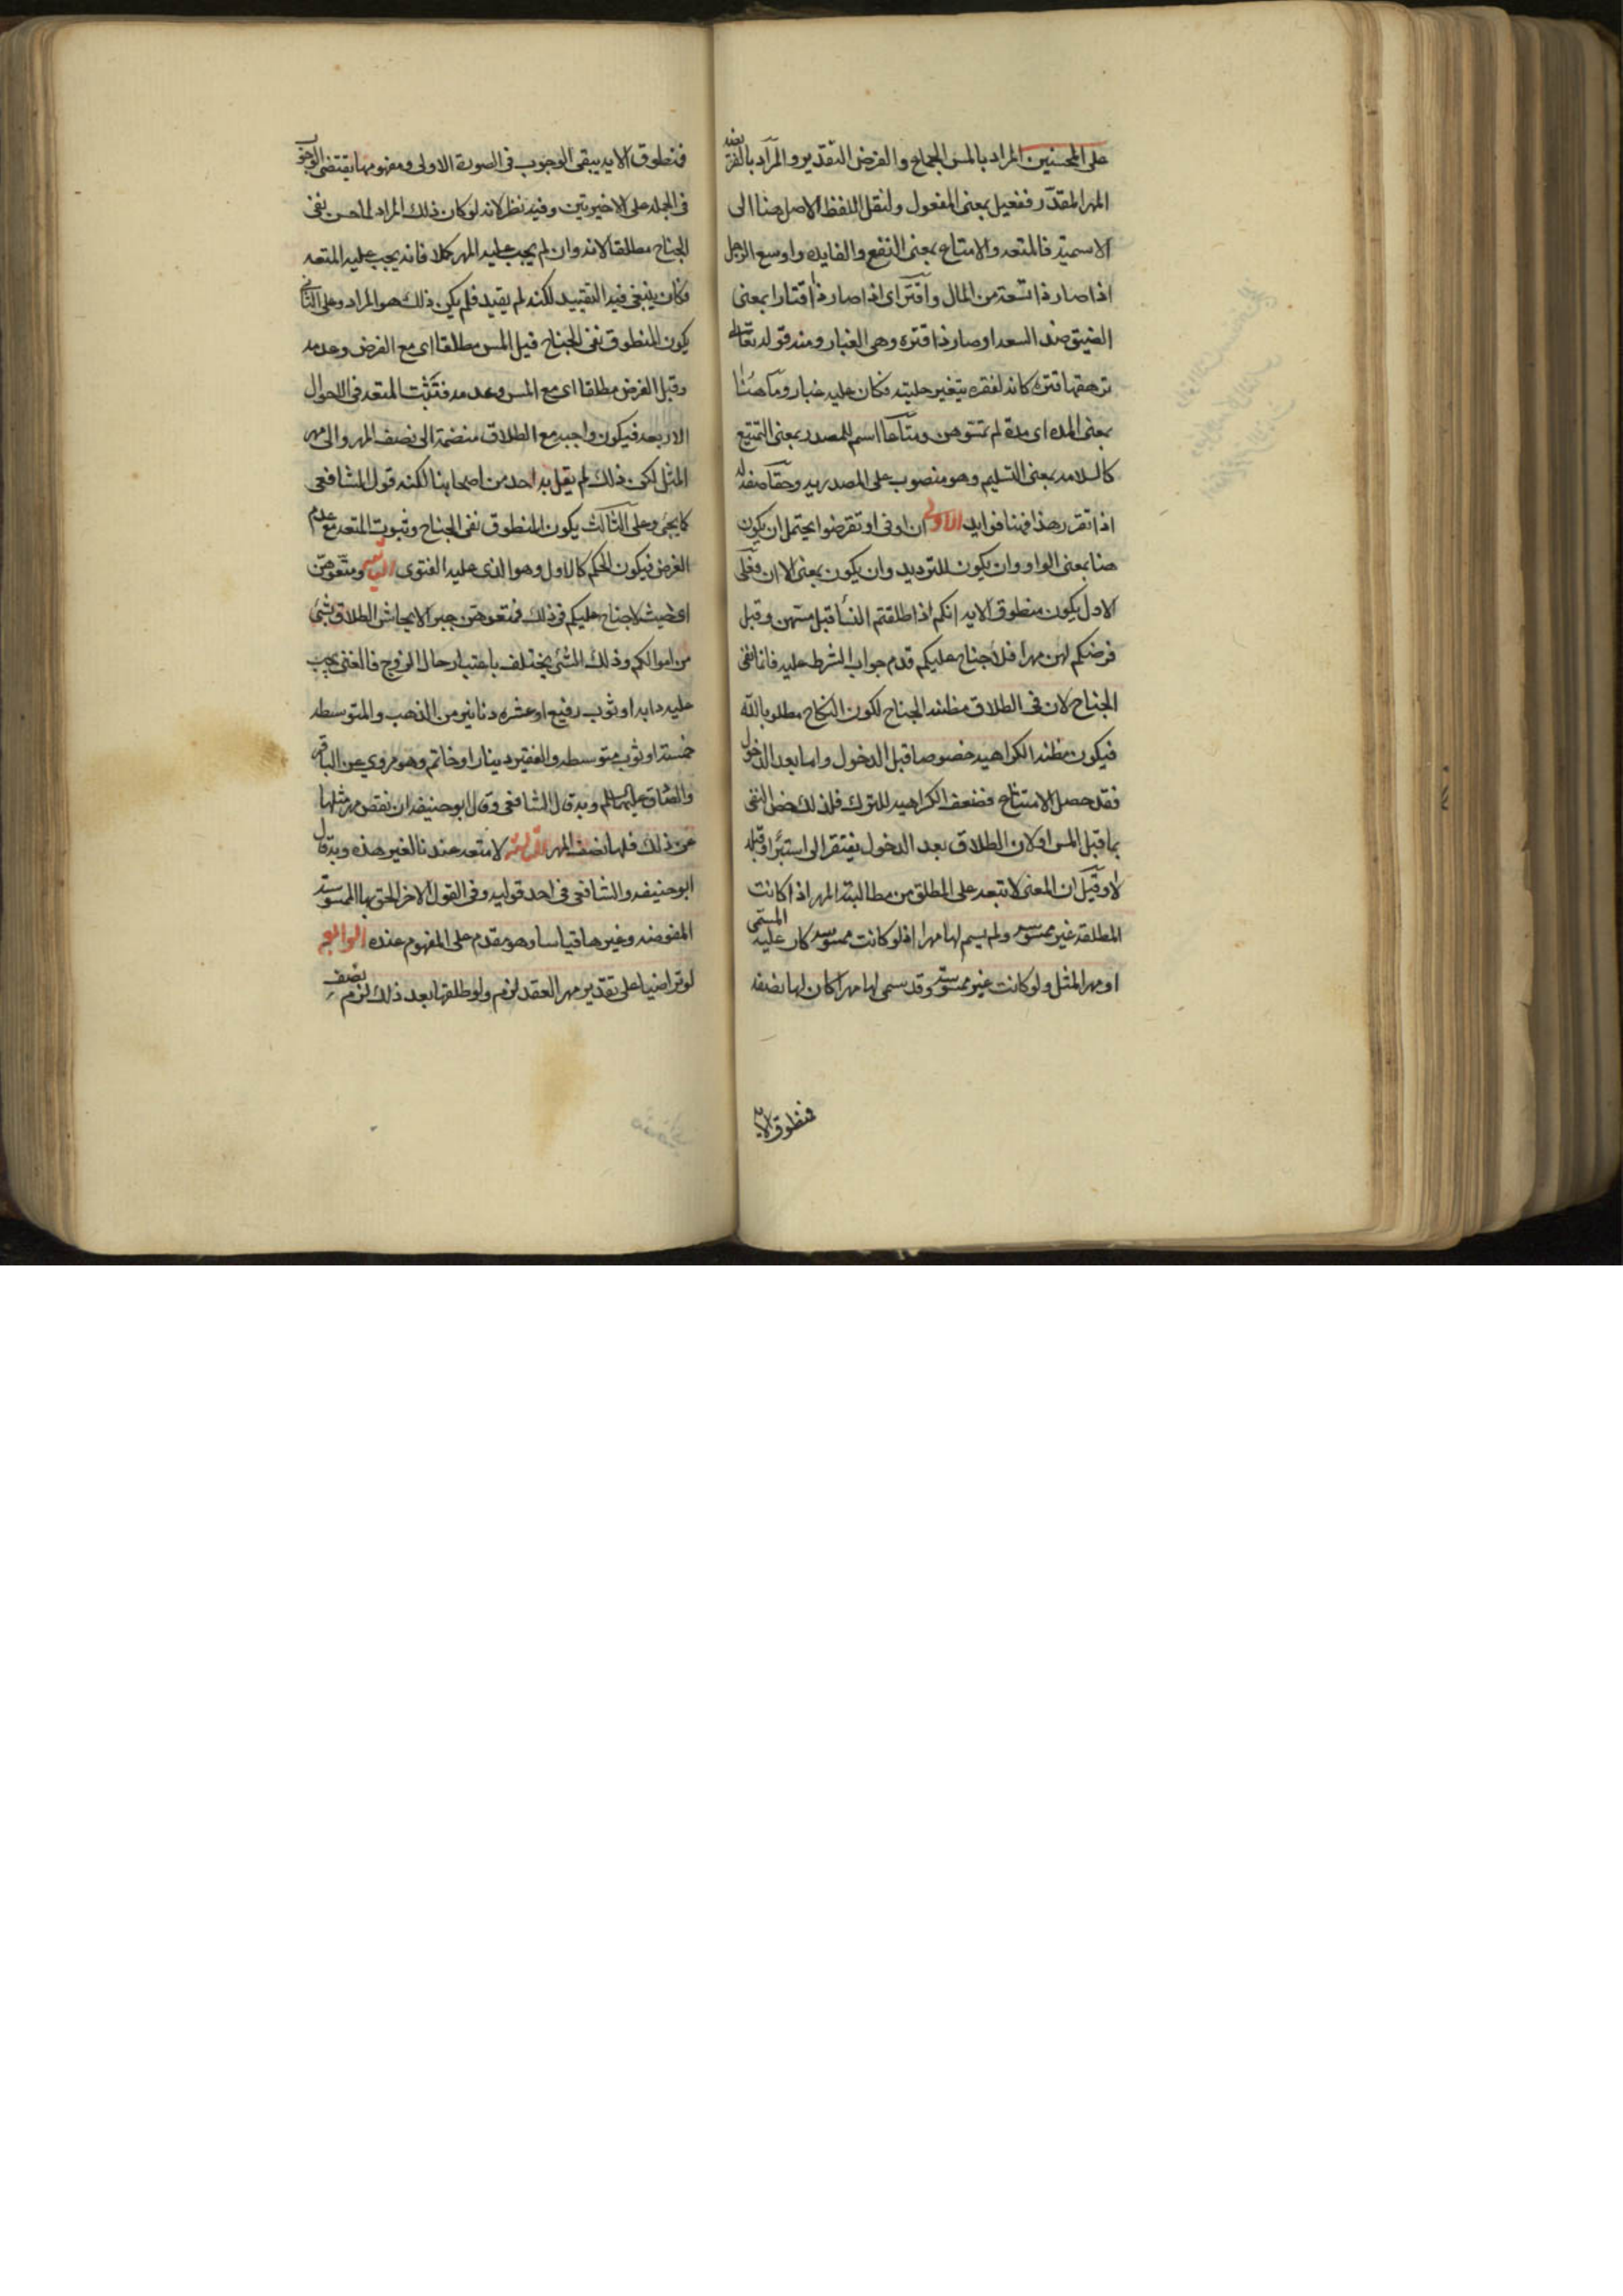 على المحسنين المراد بالمس الجماع والفرض التقدير والمراد بالفريضة
المهر المقدر ففعيل بمعنى المفعول ولنقل اللفظ الاصل هنا الى
الاسمية فالمتعه والامتاع بمعنى النفع والفايده واوسع الرجل
اذا صار ذا سعة من المال واقتر اى اذا صار ذا اقتار بمعنى
الضيق ضد السعه او صار ذا قتره وهى الغبار ومنه قوله تعالى
ترهقها قتره كانه لفقره يتغير حليته فكان عليه غبار وما هنا
بمعنى المده اى مدة لم تمسوهن ومتاعا اسم للمصدر بمعنى التمتيع
كالسلامه بمعنى التسليم وهو منصوب على المصدريه وحقا صفة له
اذا تقرر هذا فهنا فوايد الاولى ان او فى او تفرضوا يحتمل ان يكون
هنا بمعنى الواو وان يكون للترديد وان يكون بمعنى الا ان فعلى
الاول يكون منطوق الايه انكم اذا طلقتم النسا قبل مسهن وقبل
فرضكم لهن مهرا فلا جناح عليكم قدم جواب الشرط عليه فانما نفى
الجناح لان فى الطلاق مظنه الجناح لكون النكاح مطلوبا لله
فيكون مظنه الكراهيه خصوصا قبل الدخول واما بعد الدخول
فقد حصل الامتناع فضعف الكراهيه للترك فلذلك خص النفى
بما قبل المس اولان الطلاق بعد الدخول يفتقر الى استبرا وقبله
لا وقيل ان المعنى لا تبعه على المطلق من مطالبة المهر اذا كانت
المطلقه غير ممسوسه ولم يسم لها مهرا اذ لو كانت ممسوسه كان عليه المسمى
او مهر المثل ولو كانت غير ممسوسة وقد سمى لها مهرا كان لها نصفه
فمنطوق الايه
فمنطوق الايه يبقى الوجوب فى الصورة الاولى ومفهومها يقتضى الوجوب
فى الجمله على الاخيرتين وفيه نظر لانه لو كان ذلك المراد لما حسن نفى
الجناح مطلقا لانه وان لم يجب عليه المهر كملا فانه يجب عليه المتعه
فكان ينبغى فيه التقييد لكنه لم يقيد فلم يكن ذلك هو المراد وعلى الثانى
يكون المنطوق نفى الجناح قبل المس مطلقا اى مع الفرض وعدمه
وقبل الفرض مطلقا اى مع المس وعدمه فتثبت المتعه فى الاحوال
الاربعه فيكون واجبه مع الطلاق منضمة الى نصف المهر والى مهر
المثل لكن ذلك لم يقل به احد من اصحابنا لكنه قول للشافعى
كما يجئ وعلى الثالث يكون المنطوق نفى الجناح وثبوت المتعه مع عدم
الفرض فيكون الحكم كالاول وهو الذى عليه الفتوى الثانيه ومتعوهن
اى حيث لا جناح عليكم فى ذلك فمتعوهن جبرا لايحاش الطلاق بشئ
من اموالكم وذلك الشئ يختلف باعتبار حال الزوج فالغنى يجب
عليه دابه او ثوب رفيع او عشره دنانير من الذهب والمتوسط
خمسة او ثوب متوسط والفقير دينار او خاتم وهو مروى عن الباقر
والصادق عليهما السلم وبه قال الشافعى وقال ابو حنيفه ان نقص مهر مثلها
عن ذلك فلها نصف المهر الثالثه لا متعه عندنا لغير هذه وبه قال
ابو حنيفه والشافعى فى احد قوليه وفى القول الاخر الحق بها الممسوسة
المفوضه وغيرها قياسا وهو مقدم على المفهوم عنده الرابعه
لو تراضيا على تقدير مهر العقد لزم ولو طلقها بعد ذلك لزم نصف